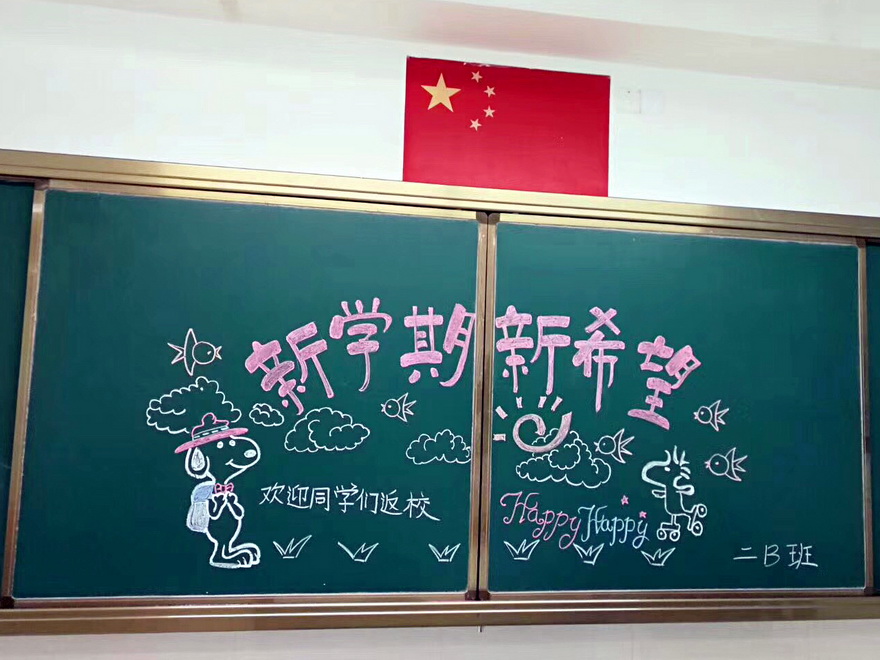 新学期新希望
欢迎同学们返校
Happy Happy
二B班